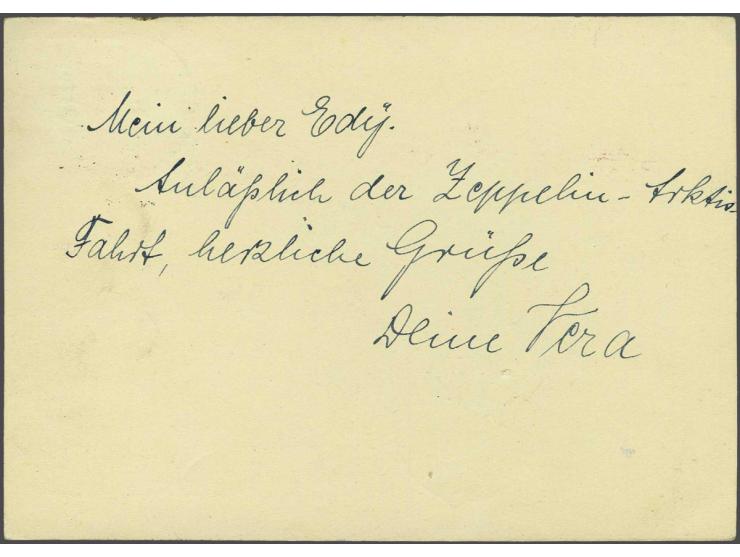 Mein lieber Edÿ.
Anläßlich der Zeppelin-Arktis-
Fahrt, herzliche Grüße
Deine Vera